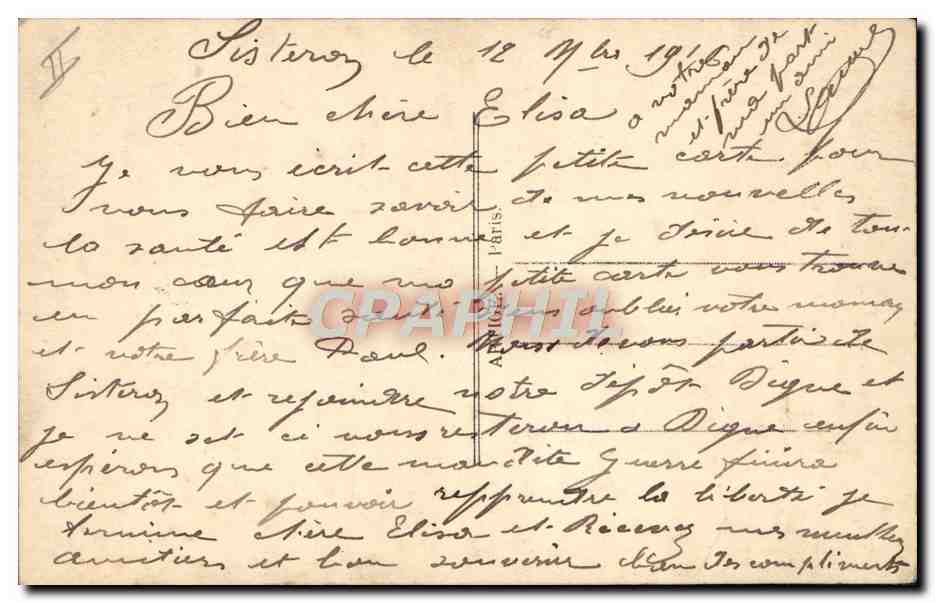 II
Sisteron le 12 Nbre 191
Bien chère Elisa
Je vous écrit cette petite carte pour
vous faire savoir de mes nouvelles
la santé est bonne et je désire de tou
mon cœur que ma petite carte vous trouve
en parfaite santé sans oublier votre maman
et votre frère Paul. Nous devons partir de
Sisteron et rejoindre notre dépôt Digne et
je ne sat ci nous resteron a Digne enfin
espérons que cette maudite Guerre finira
bientôt et pouvoir repprendre la liberté je
termine chère Elisa et mes meilleu
amitiés et bon souvenir bien Des compliments
a votre
maman
et frère de
ma part
un ami
A. - Paris.
CPAPHIL